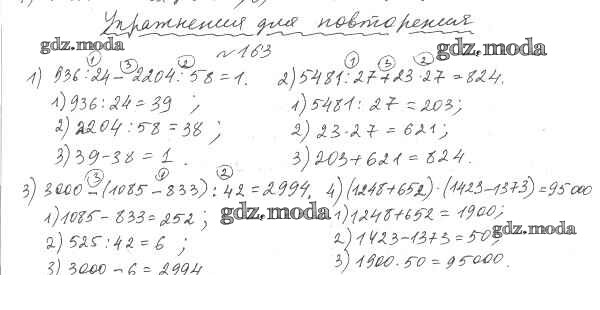 Упражнения для повторения
gdz.moda
№163
gdz.moda
① ③ ②
1) 936:24 - 2204:58 = 1.
1) 936:24 = 39 ;
2) 2204:58 = 38 ;
3) 39-38 = 1 .
① ③ ②
2) 5481:27+23·27 = 824.
1) 5481:27 = 203;
2) 23·27 = 621;
3) 203+621 = 824.
③ ① ②
3) 3000-(1085-833):42 = 2994,
1) 1085-833 = 252 ;
2) 525:42 = 6 ;
3) 3000-6 = 2994
gdz.moda
4) (1248+652)·(1423-1373) = 95000
1) 1248+652 = 1900;
2) 1423-1373 = 50;
3) 1900·50 = 95000.
gdz.moda